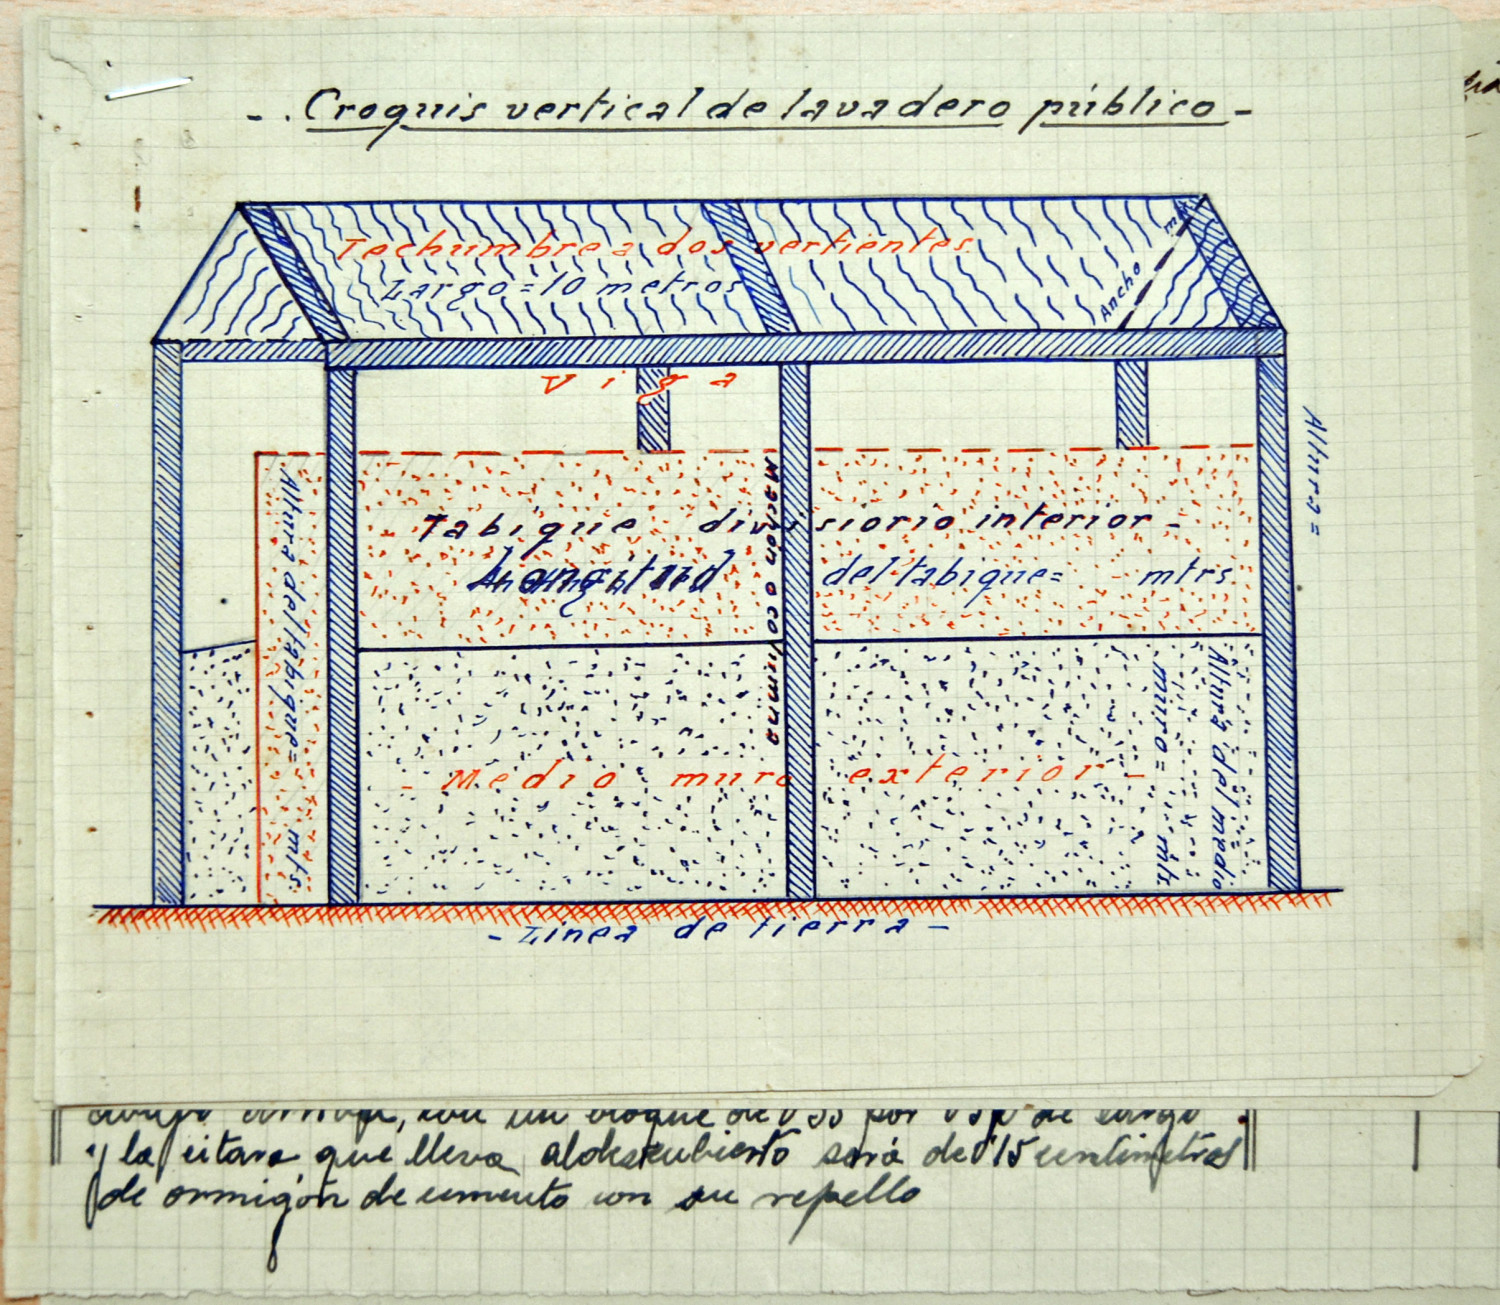 -. Croquis vertical de lavadero público -
Techumbre a dos vertientes.
Largo = 10 metros
Ancho mts
Viga
Altura =
Tabique divissiorio interior -
Longitud del tabique= mtrs
Machón o columna
Altura del tabique= mts.
Altura del medio
muro= mts.
- Medio muro exterior -
- Línea de tierra -
un bloque de por de largo
y la citara que lleva aldescubierto será de 0'15 centimetros
de ormigón de cemento con su repello